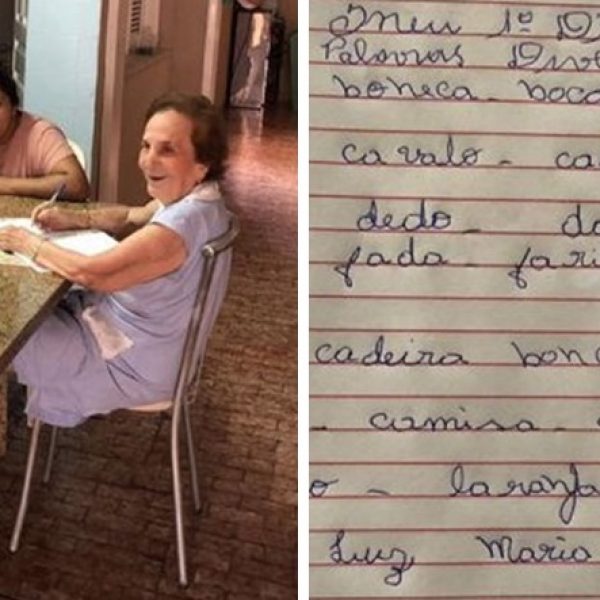 O meu 1º Di
Palavras Div
boneca - boca
cavalo - ca
dedo - da
fada - fari
cadeira bone
- camisa -
o - laranja
Luz Maria